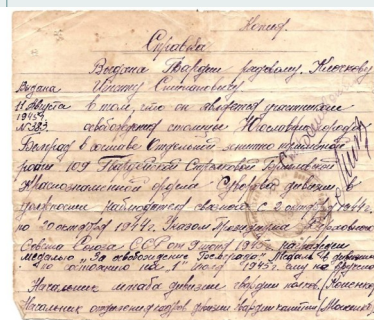 Копия.
Справка
Выдана Гвардии рядовому Клочкову
Выдана
11 августа
1945г
N 383
Ивану Степановичу
в том, что он является участником
освобождения столицы Югославии города
Белград в составе Отдельной роты 109 Гвардейской Стрелковой
Краснознаменной ордена Суворова дивизии в
должности наблюдателя связного с 2 октября 1944г
по 20 октября 1944г. Указом Президиума Верховного
Совета Союза ССР от 9 июня 1945г. награжден
медалью "За освобождение Белграда" Медаль в дивизии
по состоянию на "1" 1945г. ему не вручена
Начальник штаба дивизии гвардии полковник
Начальник отделения кадров дивизии гвардии капитан